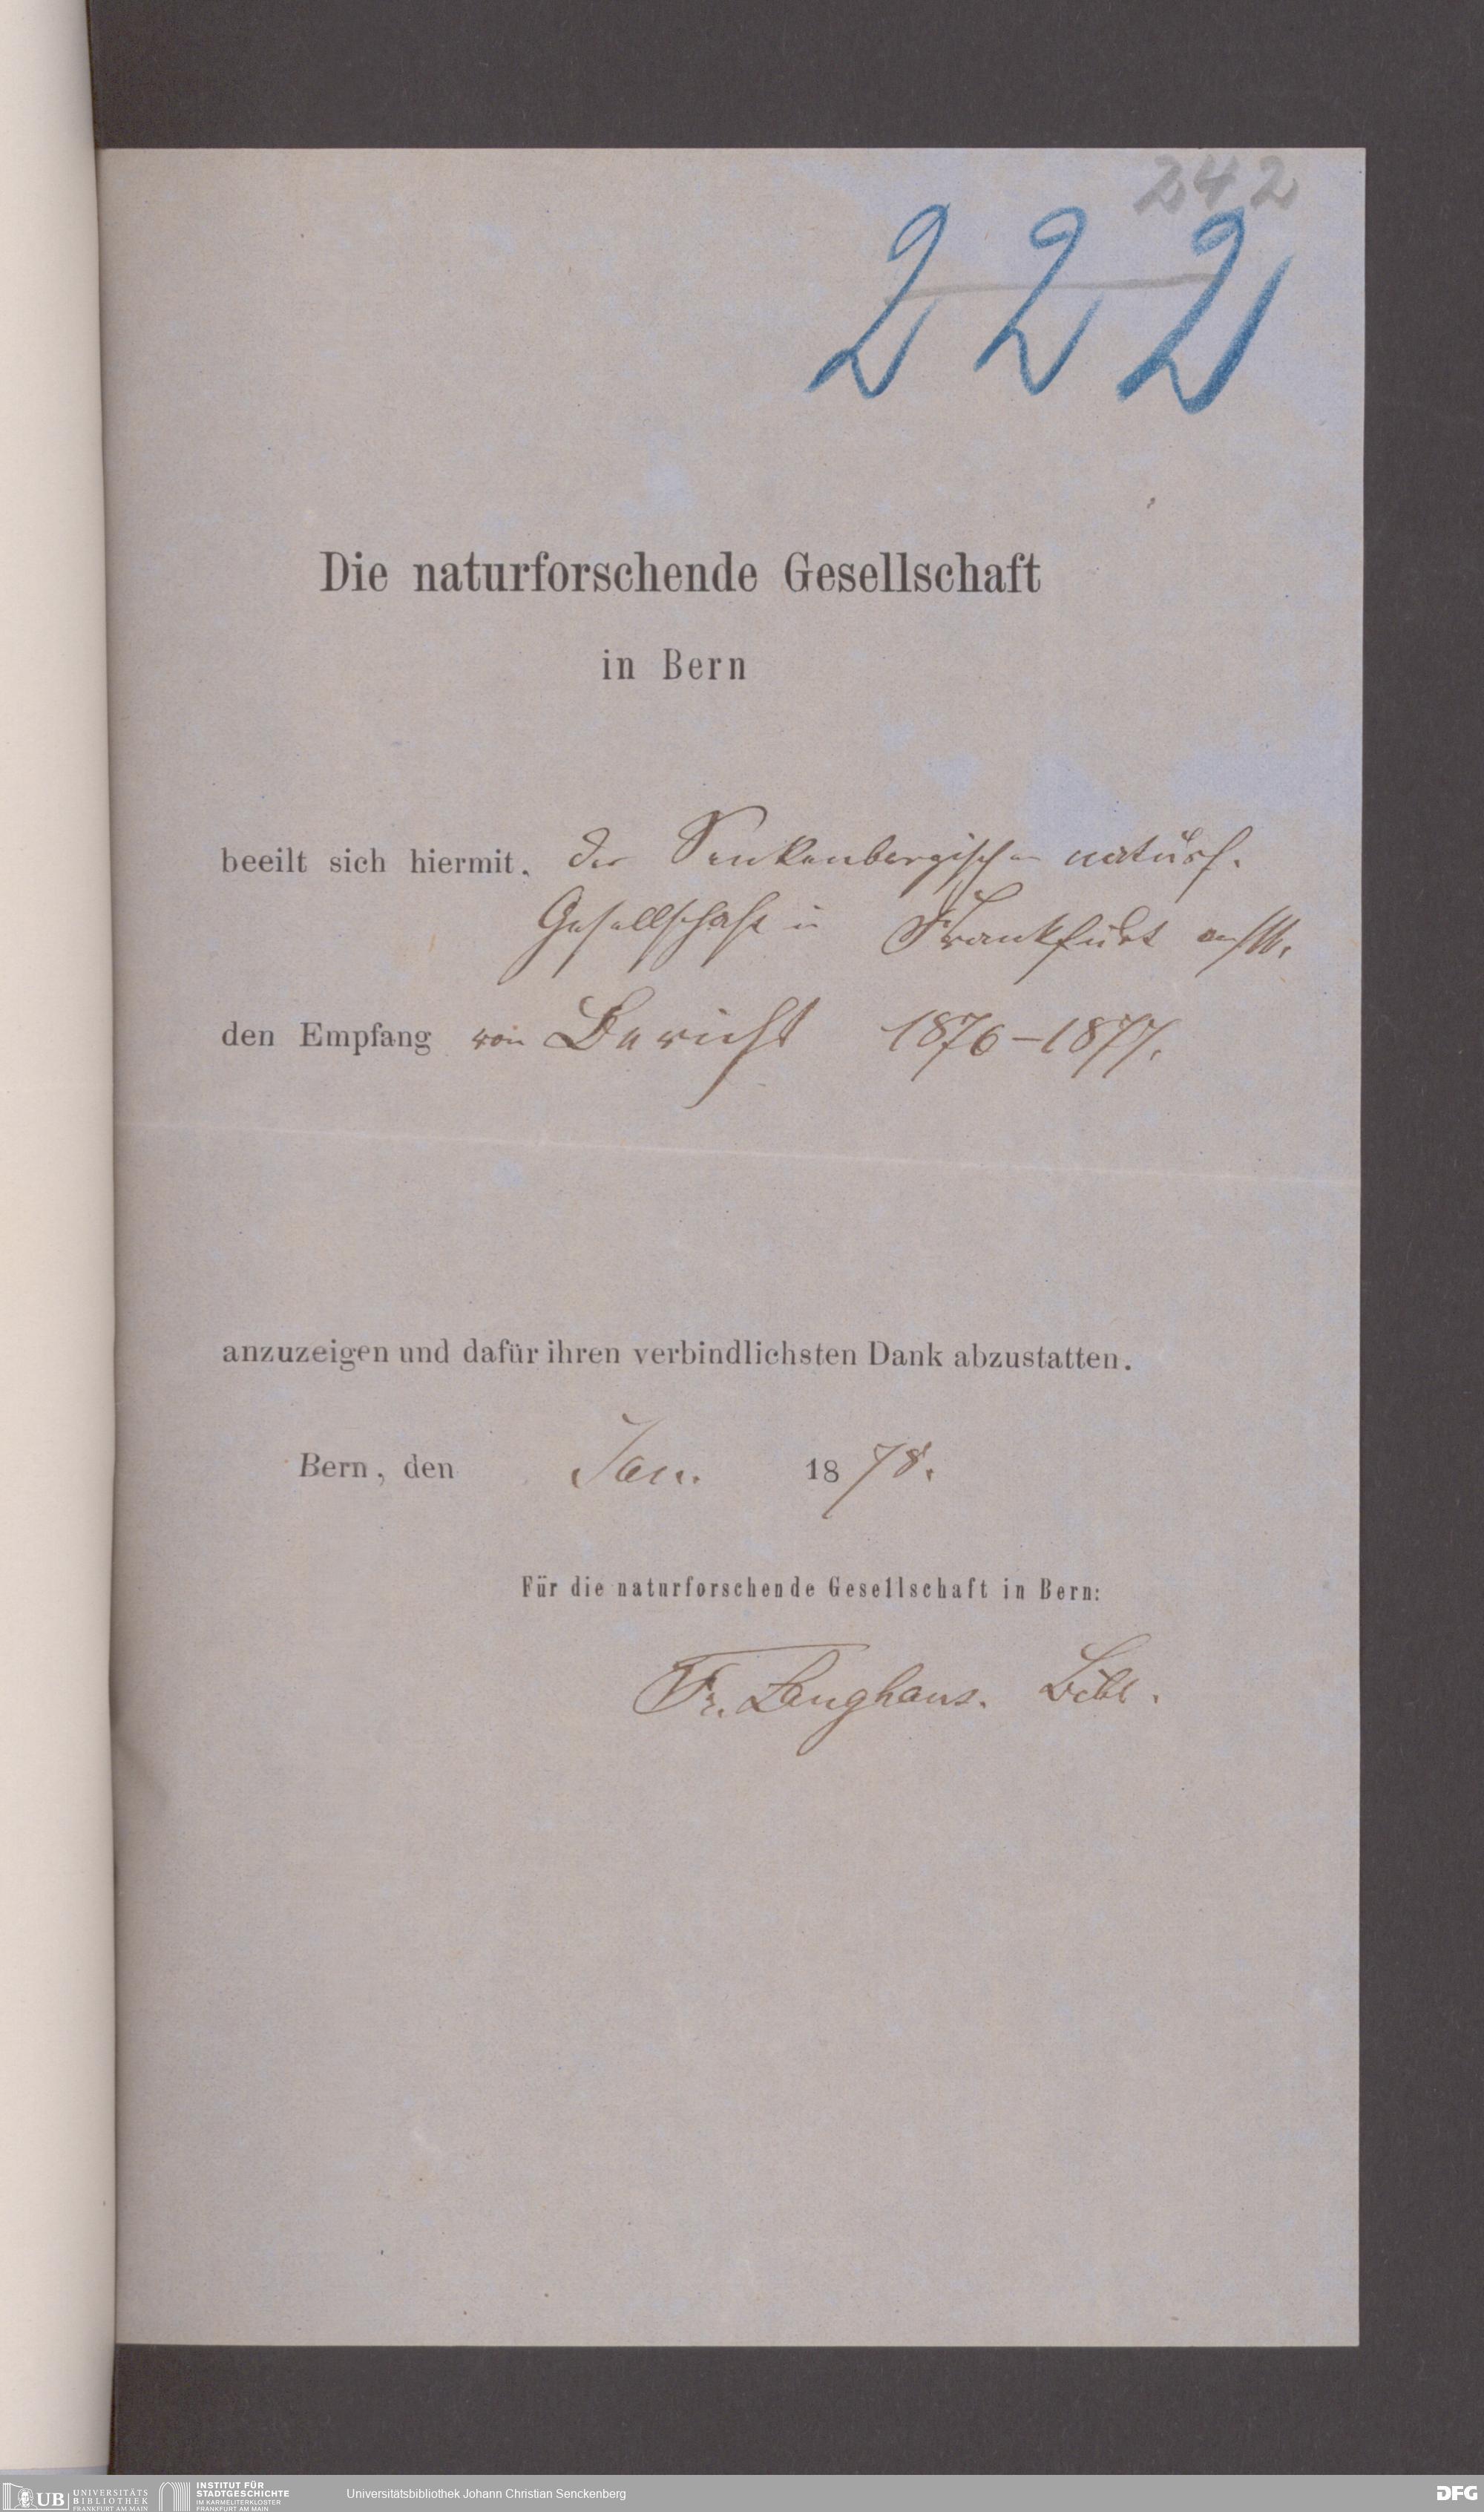 242
222
Die naturforschende Gesellschaft
in Bern
beeilt sich hiermit, der Senkenbergischen naturf.
Gesellschaft in Frankfurt a/M.
den Empfang von Bericht 1876-1877.
anzuzeigen und dafür ihren verbindlichsten Dank abzustatten.
Bern, den Jan. 1878.
Für die naturforschende Gesellschaft in Bern:
Fr. Langhans. Bibl.
UB UNIVERSITÄTS BIBLIOTHEK FRANKFURT AM MAIN
INSTITUT FÜR STADTGESCHICHTE IM KARMELITERKLOSTER FRANKFURT AM MAIN
Universitätsbibliothek Johann Christian Senckenberg
DFG